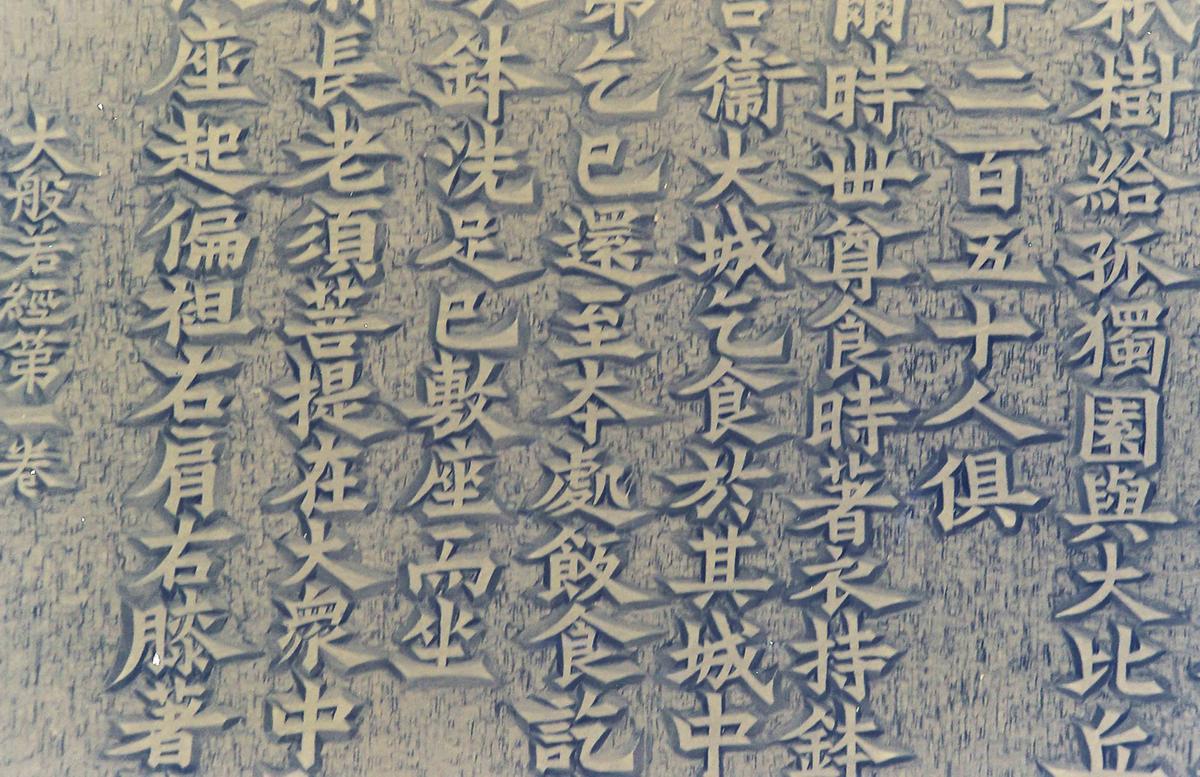 祇樹給孤獨園與大比丘
千二百五十人俱
爾時世尊食時著衣持鉢
舍衞大城乞食於其城中
第乞已還至本處飯食訖
鉢洗足已敷座而坐
長老須菩提在大衆中
座起偏袒右肩右膝著
大般若經第二卷